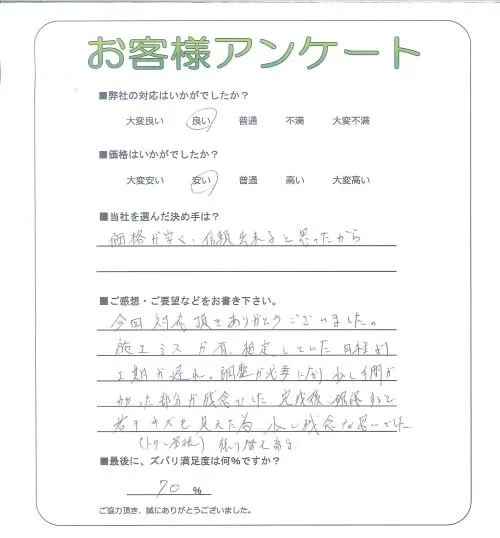 お客様アンケート
■弊社の対応はいかがでしたか？
大変良い 良い 普通 不満 大変不満
■価格はいかがでしたか？
大変安い 安い 普通 高い 大変高い
■当社を選んだ決め手は？
価格が安く、信頼出来ると思ったから
■ご感想・ご要望などをお書き下さい。
今回 対応頂きありがとうございました。
施工ミスが有、想定していた日程より
工期が遅れ、調整が必要になり、少し手間が
かかった部分が残念でした。完成後、確認すると
若干キズも見えた為、少し残念な思いでした
(トタン屋根) 張り替え部分
■最後に、ズバリ満足度は何％ですか？
70 %
ご協力頂き、誠にありがとうございました。